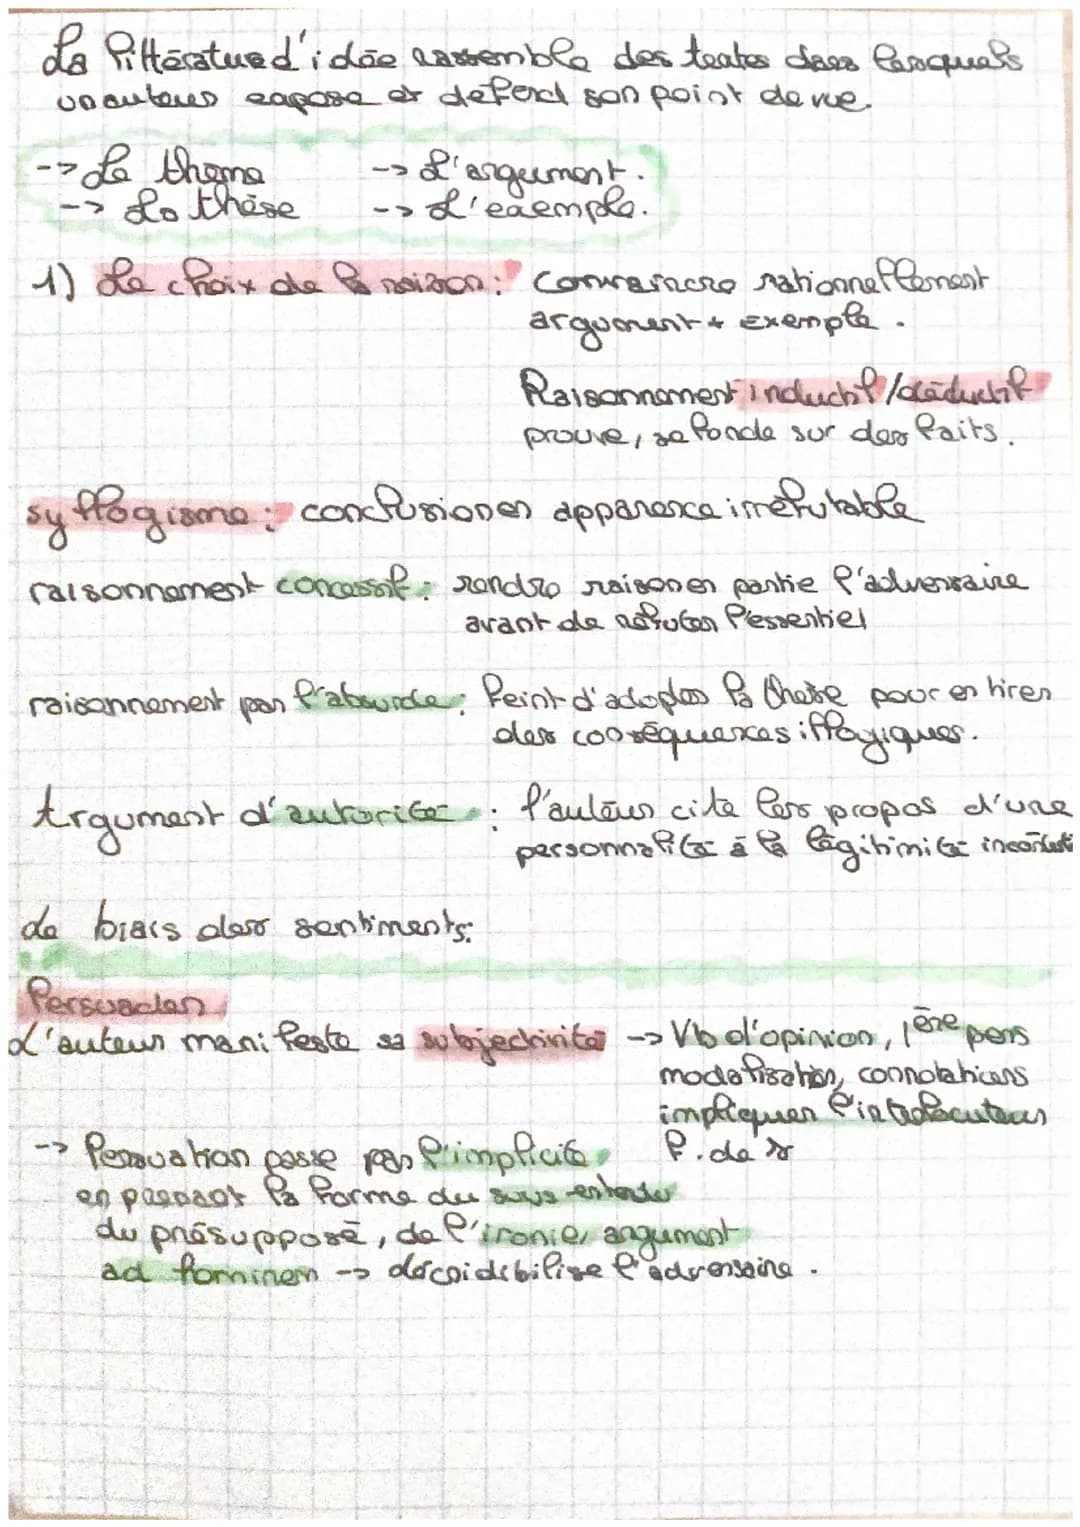 La littérature d'idée rassemble des textes dans lesquels
un auteur expose et défend son point de vue.
--> Le thème --> L'argument.
--> La thèse --> L'exemple.
1) Le choix de la raison : Convaincre rationnellement
argument + Exemple.
Raisonnement inductif/déductif
prouve, se fonde sur des faits.
syllogisme : conclusion en apparence irréfutable
raisonnement concessif : rendre raison en partie l'adversaire
avant de réfuter l'essentiel
raisonnement par l'absurde : feint d'adopter la thèse pour en tirer
des conséquences illogiques.
Argument d'autorité : l'auteur cite les propos d'une
personnalité à la légitimité incontesti
de biais des sentiments:
Persuader
L'auteur manifeste sa subjectivité --> Vb d'opinion, 1ère pers
modalisation, connotations
impliquer l'interlocuteur
--> Persuation passe par l'implicite F. de
en prenant la forme du sous-entendu
du présupposé, de l'ironie, argument
ad hominem --> décridibilise l'adversaire.